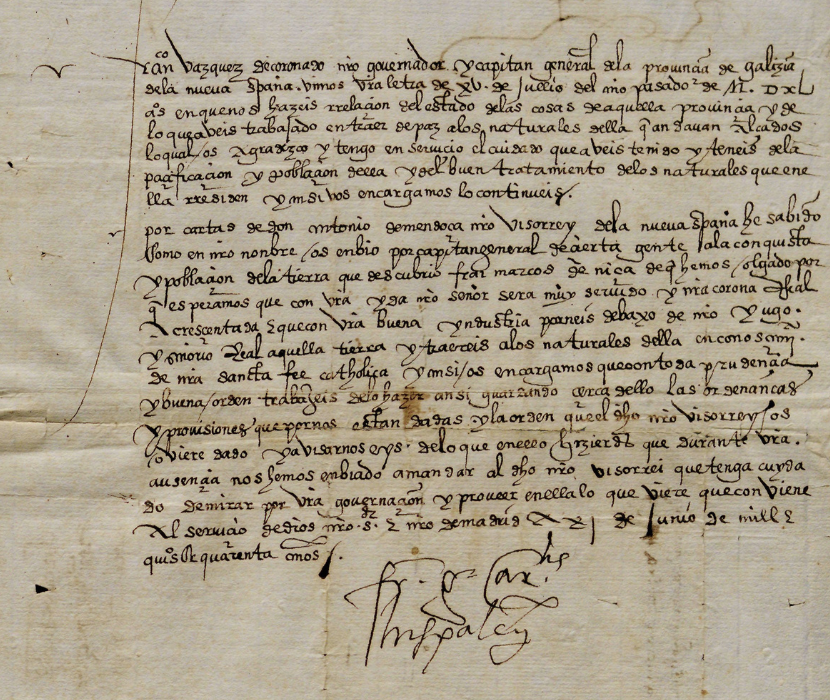 franco Vazquez de coronado nro governador y capitan general dela provincia de galizia
dela nueva spaña. vimos vra letra de XV. de Jullio del año pasado de M. D XL
aos en que nos hazeis rrelacion del estado delas cosas de aquella provincia y de
lo que aveis trabajado en traer de paz alos naturales della q andavan Alcados
lo qual / os Agradezco y tengo en servicio el cuidado que aveis tenido y teneis dela
pacificacion y poblacion della y del buen tratamiento delos naturales que en e
lla rresiden y ansi vos encargamos lo continueis.
por cartas de don Antonio de mendoça nro Visorrey dela nueva spaña he sabido
Como en nro nonbre / os enbio por capitan general de cierta gente / ala conquista
y poblacion dela tierra que descubrio frai marcos de niça de q hemos / olgado por
q esperamos que con vra yda nro señor sera muy servido y nra corona Real
Acrescentada z que con vra buena yndustria porneis debaxo de nro yugo.
y señorio Real aquella tierra y traereis alos naturales della en conoscimi.
de nra santa fee catholica y ansi / os encargamos que con toda prudencia
y buena / orden trabageis delo hazer ansi guardando cerca dello las hordenanças
y provisiones que por nos estan dadas y la orden que el dho nro visorrey / os
oviere dado y avisarnos eys. delo que en ello hizierdes que durante vra.
ausencia nos hemos enbiado a mandar al dho nro visorrei que tenga cuyda
do demirar por vra governacion y proveer en ella lo que viere que conviene
Al servicio de dios nro. s. z nro de madrid A XXI de Junio de mill z
quios z quarenta años.
fr. g. Carlis
hispalen